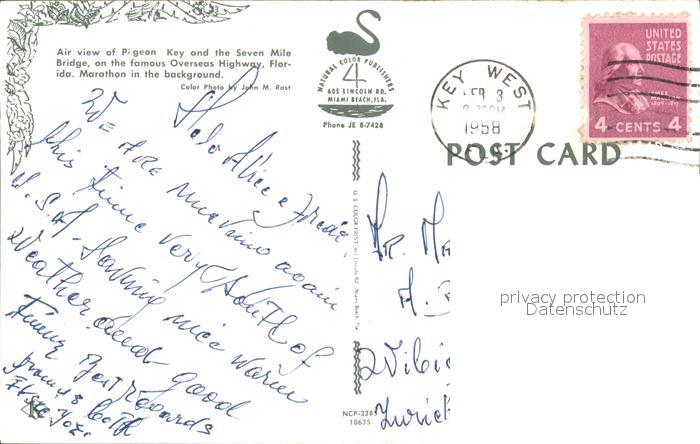 Air view of Pigeon Key and the Seven Mile
Bridge, on the famous Overseas Highway, Flor-
ida. Marathon in the background.
Color Photo by John M. Rast
NATURAL COLOR PUBLISHERS
4
605 LINCOLN RD.
MIAMI BEACH, FLA.
Phone JE 8-7428
KEY WEST
FEB 3
1958
FLA.
UNITED
STATES
POSTAGE
4 CENTS 4
POST CARD
Helo Alice & Fredi,
We are again
this time very South of
U.S.A. Having nice warm
Weather and good
time Best regards
from us both
U S COLOR PRINT,
Mr.
Zurich
NCP-3285
10635
K
privacy protection
Datenschutz